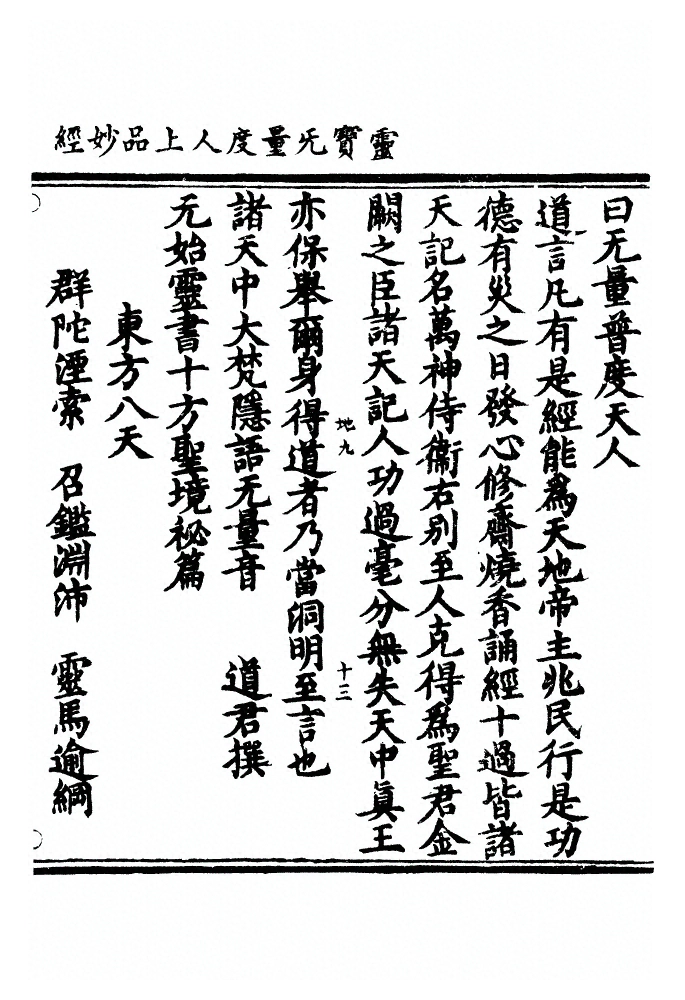 靈寶无量度人上品妙經
曰无量普度天人
道言凡有是經能為天地帝主兆民行是功
德有災之日發心修齋燒香誦經十過皆諸
天記名萬神侍衞右別至人克得為聖君金
闕之臣諸天記人功過毫分無失天中真王
亦保舉爾身得道者乃當洞明至言也
地九
十三
諸天中大梵隱語无量音 道君撰
元始靈書十方聖境祕篇
東方八天
群陀湮索 召鑑淵沛 靈馬逾綱